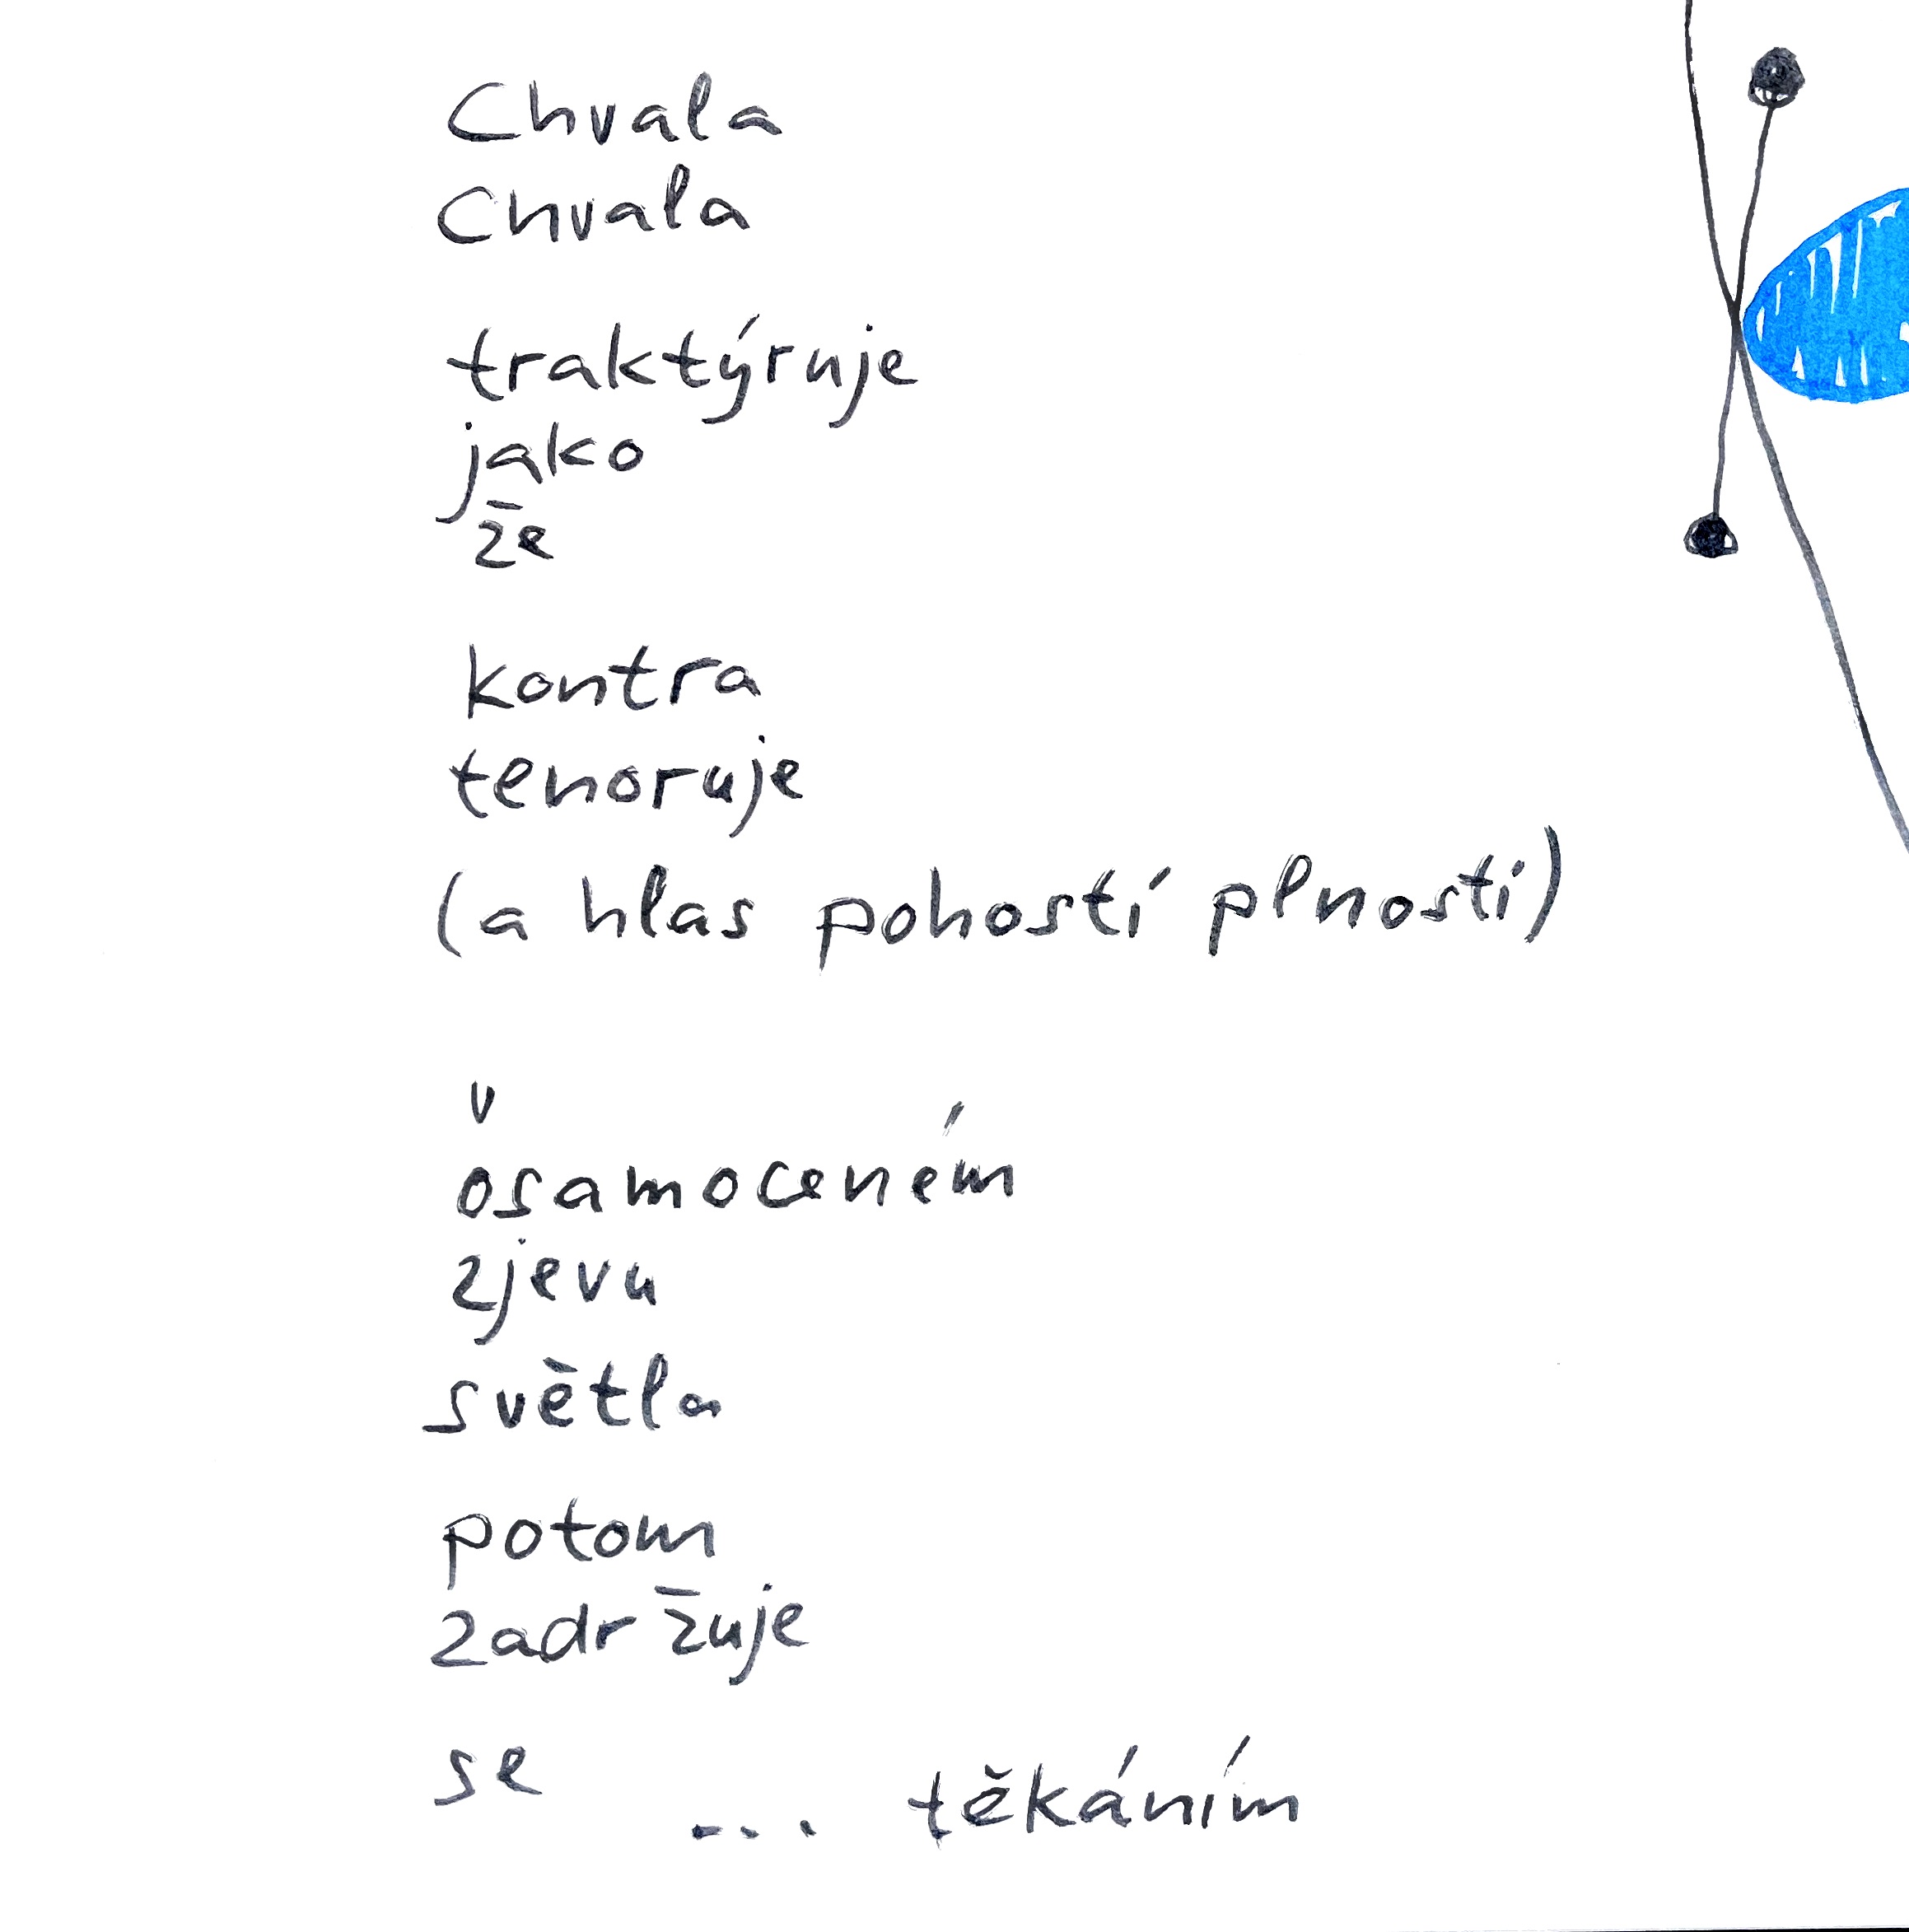 Chvala
Chvala
traktýruje
jako
že
kontra
tenoruje
(a hlas pohostí plností)
v
osamoceném
zjevu
světla
potom
zadržuje
se
... těkáním